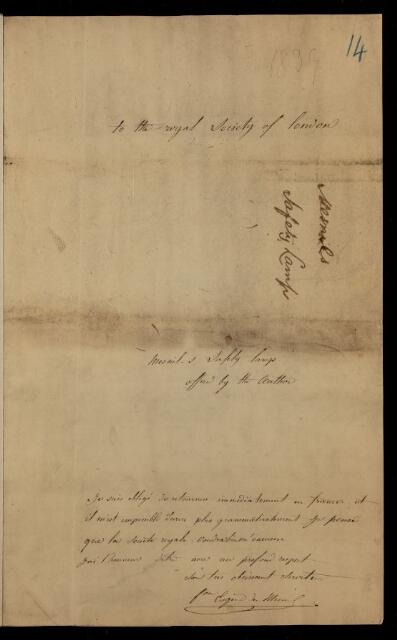 14
1839
to the royal Society of london
Mesnil's
Safety Lamp
Mesnil's Safety lamp
offered by the Author
Je suis obligé de retourner immédiatement en france et
il m'est impossible d'ecrire plus grammaticalment je pense
que la société royale voudra bien m'excuser
j'ai l'honneur d'etre avec un profond respect
Son tres obeissant serviteur
Bon Eugène du Mesnil